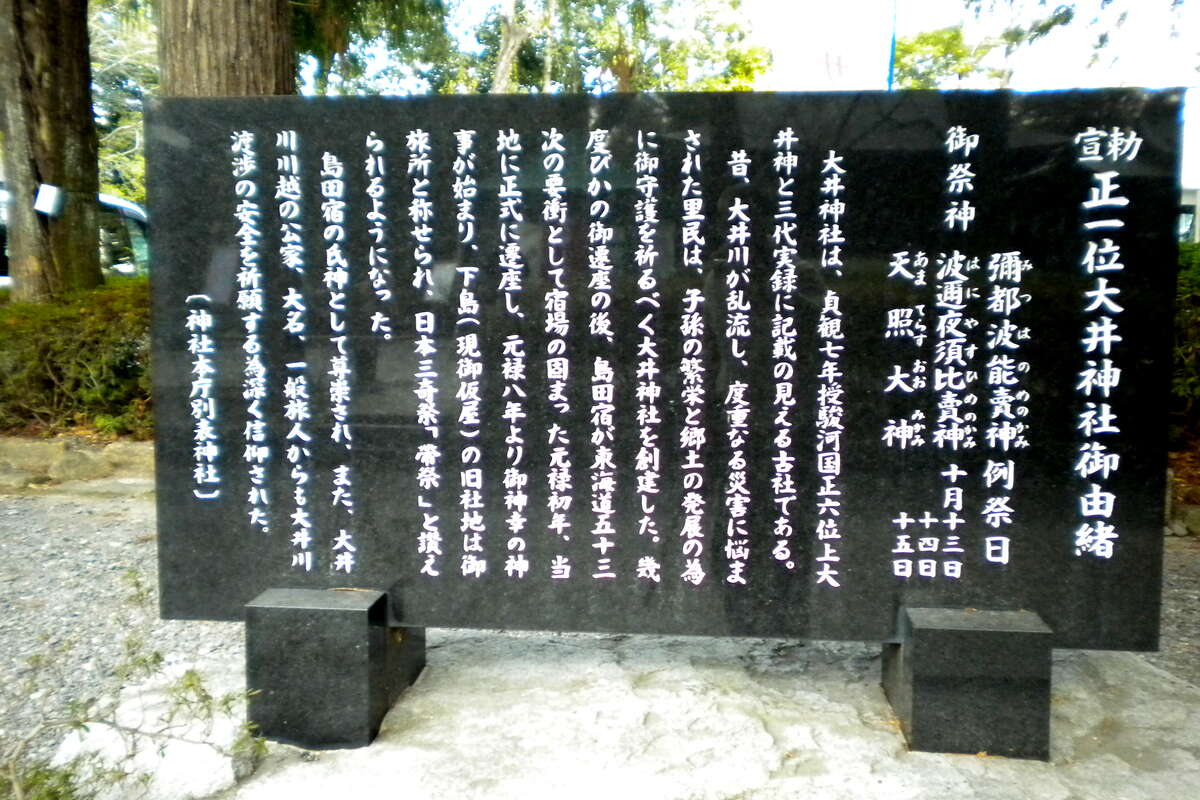 勅宣 正一位大井神社御由緒
御祭神 彌都波能賣神 例祭日
みつはのめのかみ
波邇夜須比賣神 十月十三日
はにやすひめのかみ
十四日
天照大神 十五日
あまてらすおおみかみ
大井神社は、貞観七年授駿河国正六位上大
井神と三代実録に記載の見える古社である。
昔、大井川が乱流し、度重なる災害に悩ま
された里民は、子孫の繁栄と郷土の発展の為
に御守護を祈るべく大井神社を創建した。幾
度びかの御遷座の後、島田宿が東海道五十三
次の要衝として宿場の固まった元禄初年、当
地に正式に遷座し、元禄八年より御神幸の神
事が始まり、下島(現御仮屋)の旧社地は御
旅所と称せられ、日本三奇祭「帶祭」と讃え
られるようになった。
島田宿の氏神として尊崇され、また、大井
川川越の公家、大名、一般旅人からも大井川
渡渉の安全を祈願する為深く信仰された。
(神社本庁別表神社)